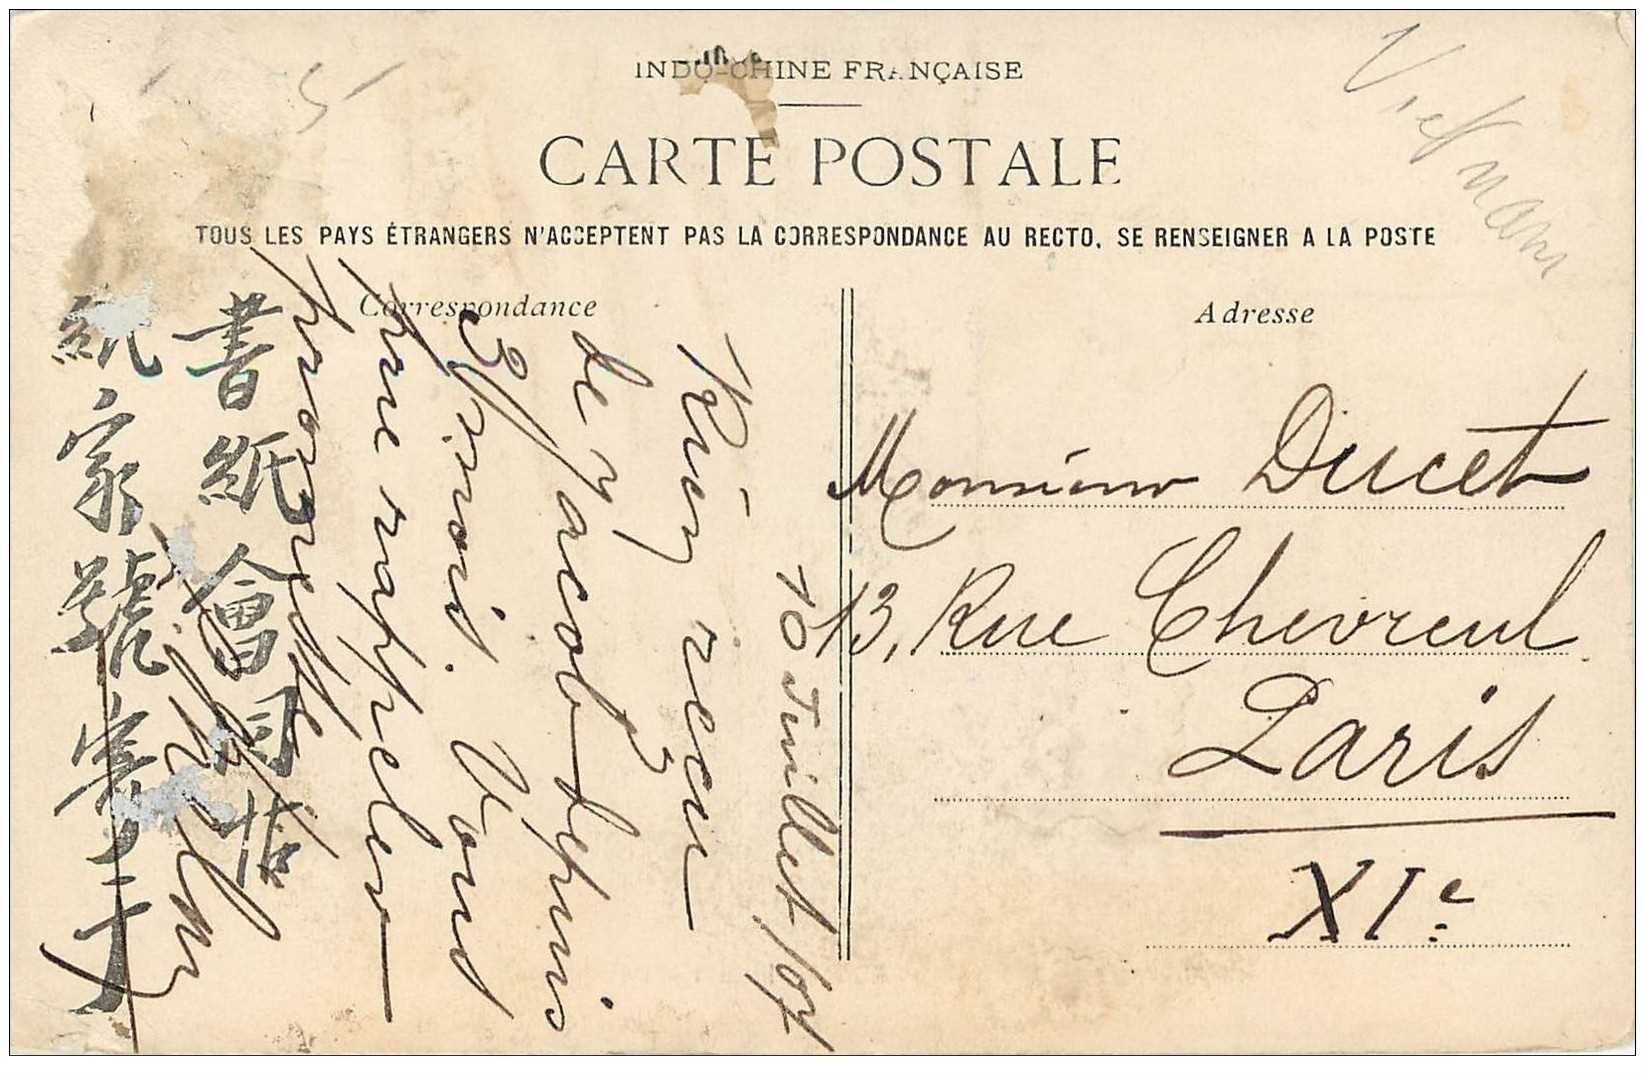 INDO-CHINE FRANÇAISE
CARTE POSTALE
TOUS LES PAYS ÉTRANGERS N'ACCEPTENT PAS LA CORRESPONDANCE AU RECTO, SE RENSEIGNER A LA POSTE
Viet nam
Correspondance
10 Juillet/07
Rien reçu
de Jacob depuis
3 mois. Vous
me rappeler
書紙會同
紙家號寄
Adresse
Monsieur Ducet
13, Rue Chevreul
Paris
XIe